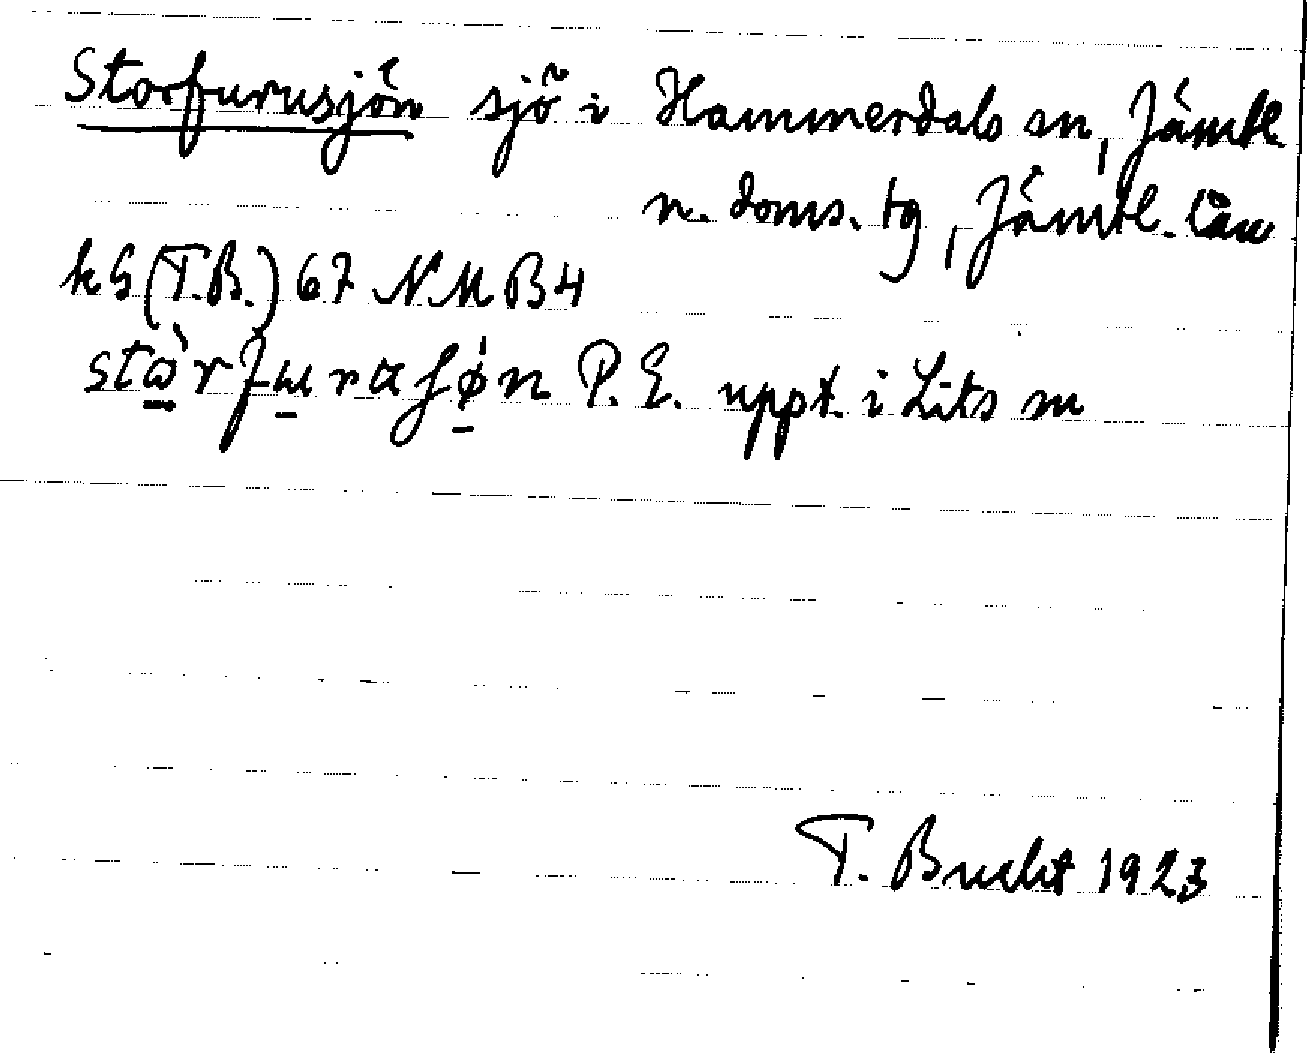 Storfurusjön sjö i Hammerdals sn, Jämtl.
n. doms. tg, Jämtl. län
kG (T.B.) 67 NMB4
P.E. uppt. i Lits sn
T. Bucht 1923